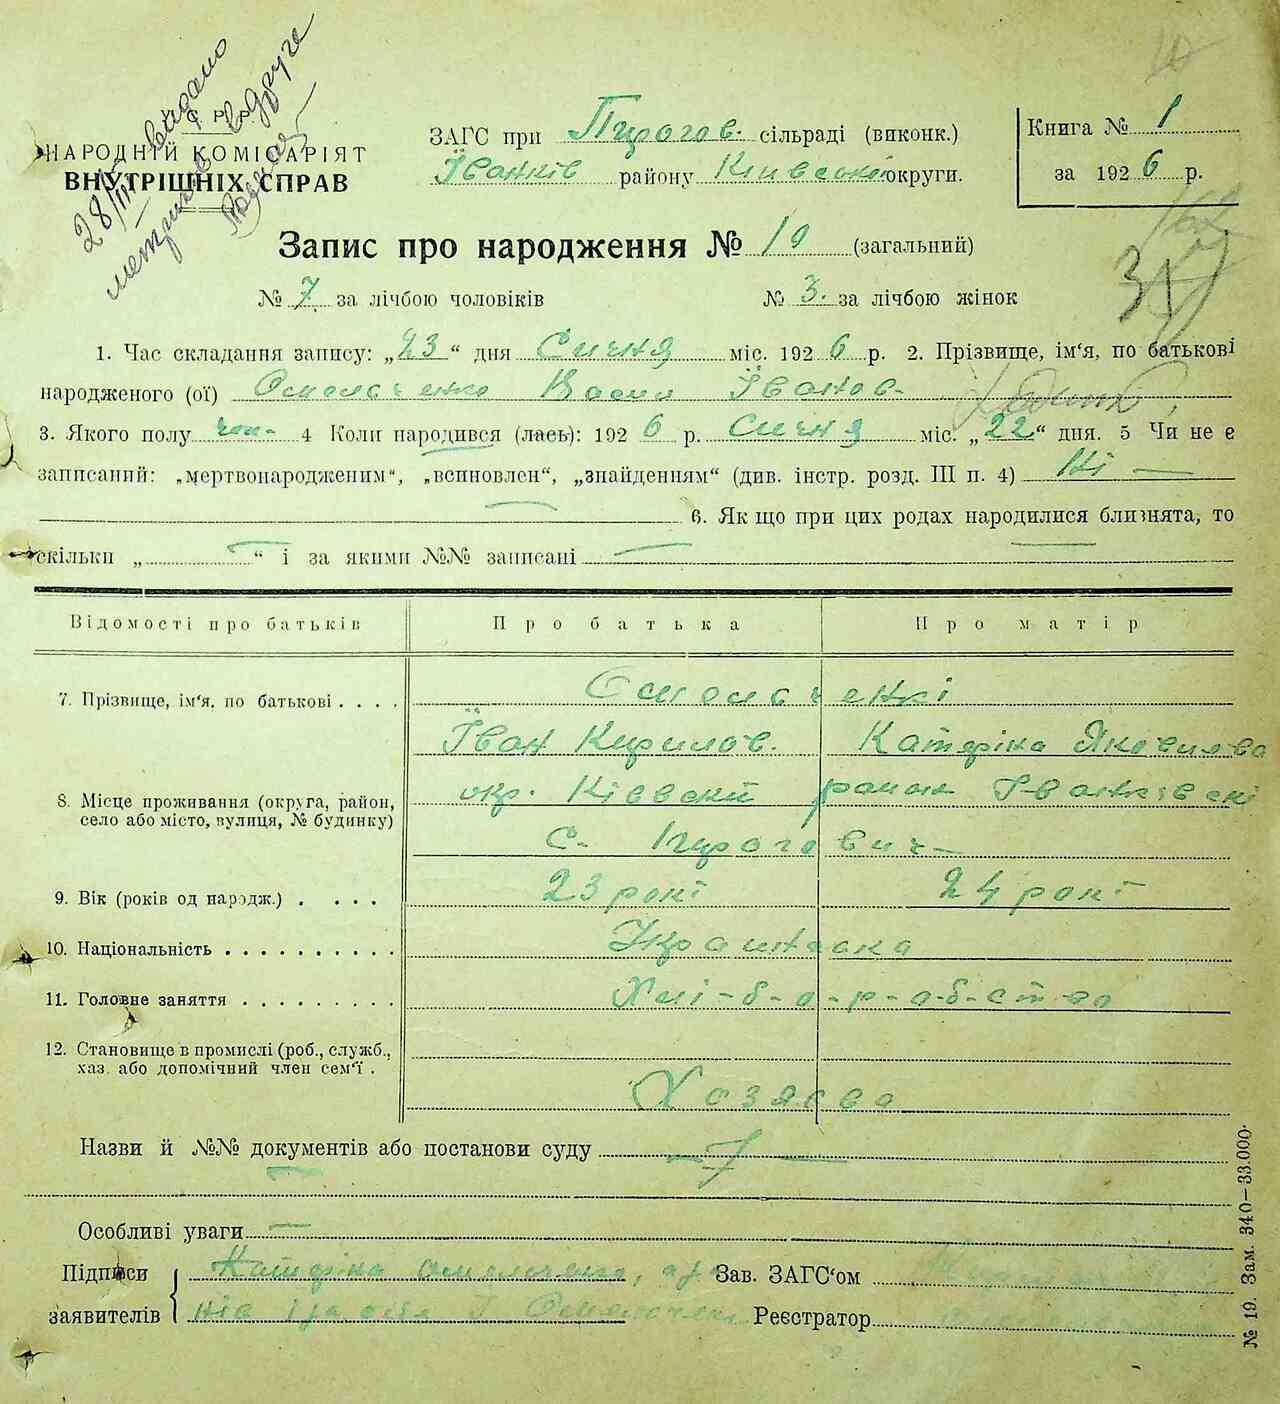 28/III видано
метрику вдруге
У С Р Р
НАРОДНІЙ КОМІСАРІЯТ
ВНУТРІШНІХ СПРАВ
ЗАГС при Пирогов. сільраді (виконк.)
Їванків району Київської округи.
Книга № 1
за 1926 р.
Запис про народження № 10 (загальний)
№ 7 за лічбою чоловіків № 3. за лічбою жінок
1. Час складання запису: „23“ дня Сичня міс. 1926 р. 2. Прізвище, ім‘я, по батькові
народженого (ої) Осмолаченко Васил Їванов-
3. Якого полу чол- 4 Коли народився (лась): 1926 р. Сичня міс. „22“ дня. 5 Чи не є
записаний: „мертвонародженим“, „всиновлен“, „знайденням“ (див. інстр. розд. III п. 4) Ні —
6. Як що при цих родах народилися близнята, то
скільки „ — “ і за якими №№ записані —
Відомості про батьків Про батька Про матір
7. Прізвище, ім‘я, по батькові . . . . Осмолаченкі
Їван Кирилов. Катеріна Яковлева
8. Місце проживання (округа, район, село або місто, вулиця, № будинку) окр. Кіевский район Іванківскі
с. Пирогович-
9. Вік (років од народж.) . . . . 23 рокі 24 рокі
10. Національність . . . . . . . . . . Українска
11. Головне заняття . . . . . . . . . Хлі-б-о-р-о-б-ст-во
12. Становище в промислі (роб., служб., хаз. або допомічний член сем‘ї . Хозяева
Назви й №№ документів або постанови суду —
Особливі уваги —
Підписи заявителів Катеріна Осмолаченко,
Зав. ЗАГС‘ом
Реєстратор
№ 19. Зам. 340—33.000.